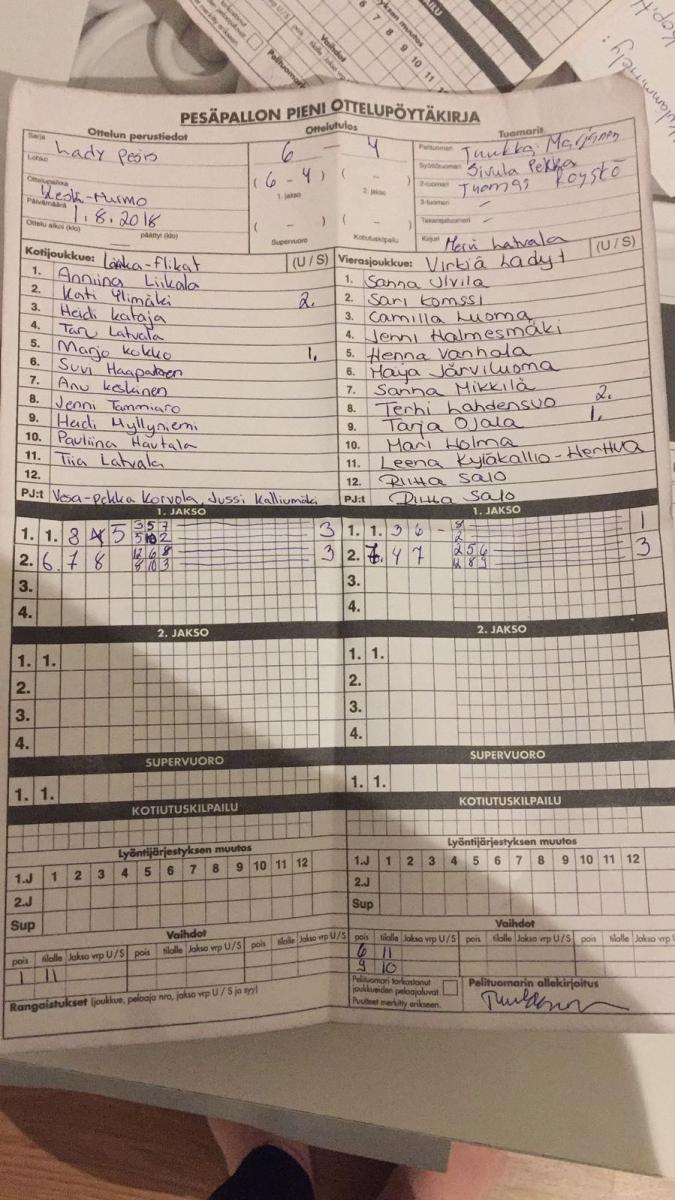 PESÄPALLON PIENI OTTELUPÖYTÄKIRJA
Ottelun perustiedot Ottelutulos Tuomarit
Sarja Lady Pesis 6 - 4 Pelituomari Tuukka Marjanen
Lohko Syöttötuomari Sivula Pekka
Ottelupaikka Keski-Nurmo (6-4) 1. jakso ( - ) 2. jakso 2-tuomari Tuomas Köystö
Päivämäärä 1.8.2018 3-tuomari -
Ottelu alkoi (klo) päättyi (klo) ( - ) Supervuoro ( - ) Kotiutuskilpailu Takarajatuomari -
Kirjuri Mervi Latvala
Kotijoukkue: Lanka-Flikat (U / S) Vierasjoukkue: Virkiä Ladyt (U / S)
1. Anniina Liikala 1. Sanna Ulvila
2. Kati Ylimäki 2. 2. Sari Komssi
3. Heidi Kataja 3. Camilla Luoma
4. Taru Latvala 4. Jenni Halmesmäki
5. Marjo Kokko 1. 5. Henna Vanhala
6. Suvi Haapanen 6. Maija Järviluoma
7. Anu Keskinen 7. Sanna Mikkilä
8. Jenni Tammiaro 8. Terhi Lahdensuo 2.
9. Heidi Myllyniemi 9. Tarja Ojala 1.
10. Pauliina Hautala 10. Mari Holma
11. Tiia Latvala 11. Leena Kyläkallio-Herttua
12. 12. Riitta Salo
PJ:t Vesa-Pekka Korvola, Jussi Kalliomäki PJ:t Riitta Salo
1. JAKSO 1. JAKSO
1. 1. 8 5 3 5 7 3 1. 1. 3 6 - 8 1
5 10 2 2
2. 6. 7 8 12 6 8 3 2. 7. 4 7 2 5 6 3
8 10 3 12 8 9
3. 3.
4. 4.
2. JAKSO 2. JAKSO
1. 1. 1. 1.
2. 2.
3. 3.
4. 4.
SUPERVUORO SUPERVUORO
1. 1. 1. 1.
KOTIUTUSKILPAILU KOTIUTUSKILPAILU
Lyöntijärjestyksen muutos Lyöntijärjestyksen muutos
1.J 1 2 3 4 5 6 7 8 9 10 11 12 1.J 1 2 3 4 5 6 7 8 9 10 11 12
2.J 2.J
Sup Sup
Vaihdot Vaihdot
pois tilalle Jakso vrp U/S pois tilalle Jakso vrp U/S pois tilalle Jakso vrp U/S pois tilalle Jakso vrp U/S pois tilalle Jakso vrp U/S pois tilalle Jakso vrp
1 11 6 11
9 10
Rangaistukset (joukkue, pelaaja nro, jakso vrp U / S ja syy) Pelituomari tarkastanut joukkueiden pelaajaluvat Pelituomarin allekirjoitus
Puutteet merkitty erikseen.